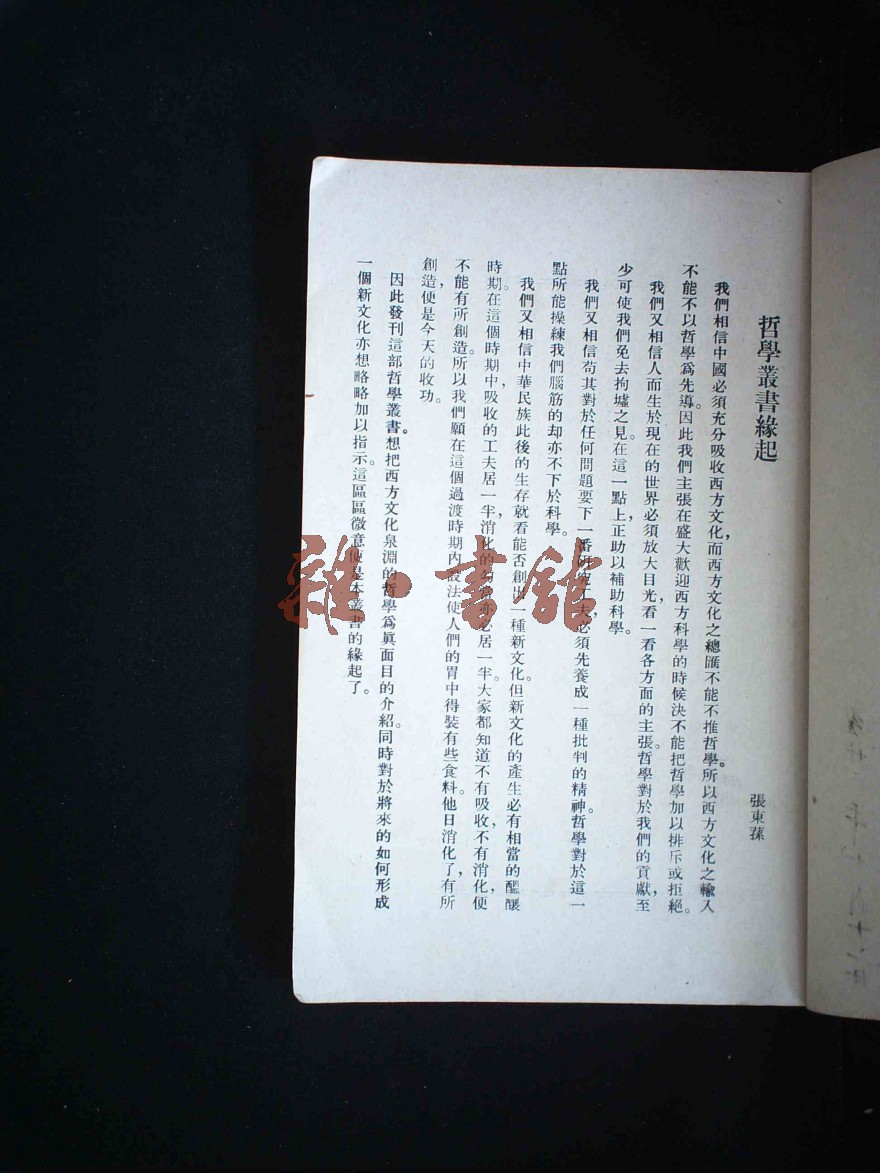 哲學叢書緣起
張東蓀
我們相信中國必須充分吸收西方文化，而西方文化之總匯不能不推哲學。所以西方文化之輸入
不能不以哲學爲先導。因此我們主張在盛大歡迎西方科學的時候決不能把哲學加以排斥或拒絕。
我們又相信人而生於現在的世界必須放大目光，看一看各方面的主張。哲學對於我們的貢獻，至
少可使我們免去拘墟之見。在這一點上，正助以補助科學。
我們又相信苟其對於任何問題要下一番研究工夫，必須先養成一種批判的精神。哲學對於這一
點所能操練我們腦筋的却亦不下於科學。
我們又相信中華民族此後的生存就看能否創出一種新文化。但新文化的產生必有相當的醞釀
時期。在這個時期中，吸收的工夫居一半，消化的亦必居一半。大家都知道不有吸收，不有消化，便
不能有所創造。所以我們願在這個過渡時期內設法使人們的胃中得裝有些食料。他日消化了，有所
創造，便是今天的收功。
因此發刊這部哲學叢書。想把西方文化泉淵的哲學爲眞面目的介紹。同時對於將來的如何形成
一個新文化亦想略略加以指示。這區區微意便是本叢書的緣起了。
雜·書館